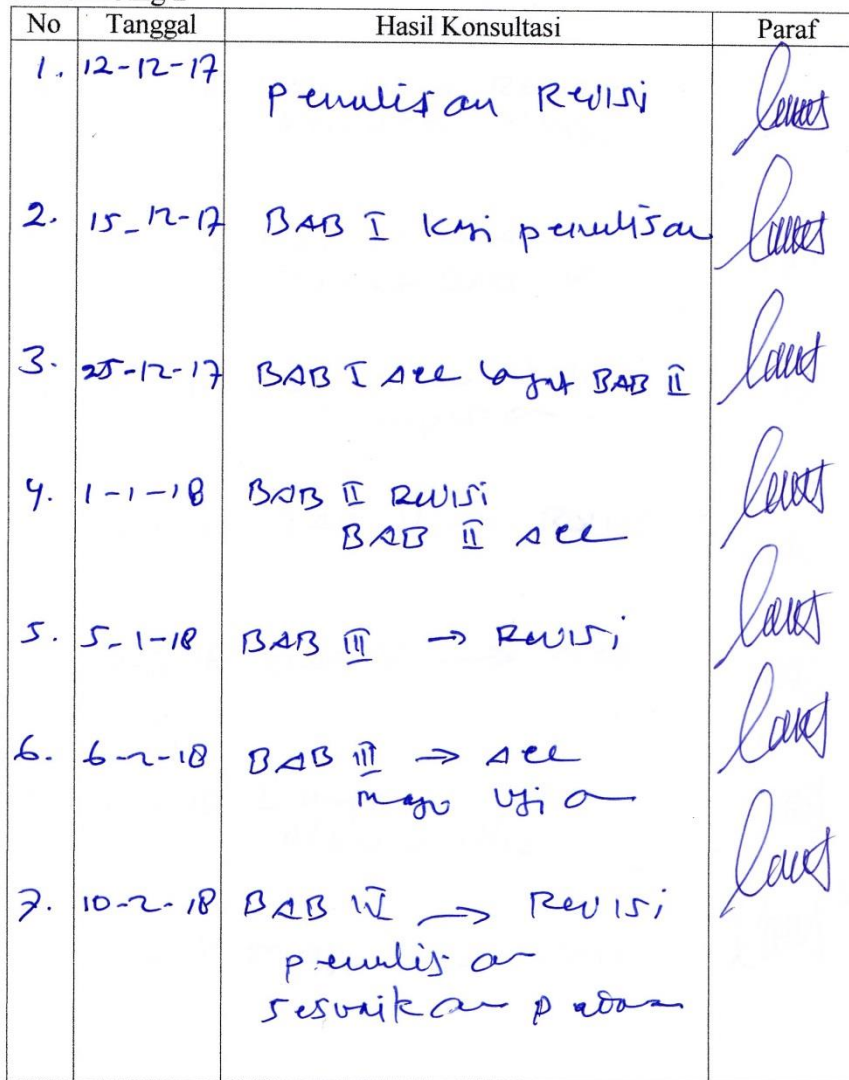 No Tanggal Hasil Konsultasi Paraf
1. 12-12-17 Penulisan Revisi
2. 15-12-17 BAB I penulisan
3. 25-12-17 BAB I Acc BAB II
4. 1-1-18 BAB II Revisi
BAB II Acc
5. 5-1-18 BAB III → Revisi
6. 6-2-18 BAB III → Acc
Ujian
7. 10-2-18 BAB IV → Revisi
penulisan
sesuaikan